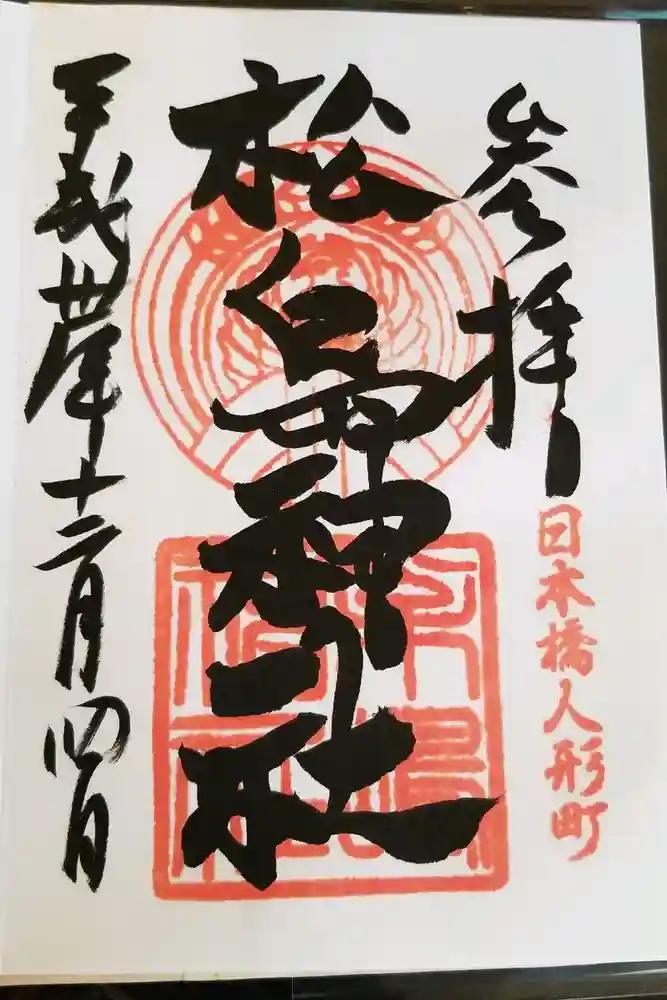 参拝
日本橋人形町
松島神社
平成卅年十二月四日